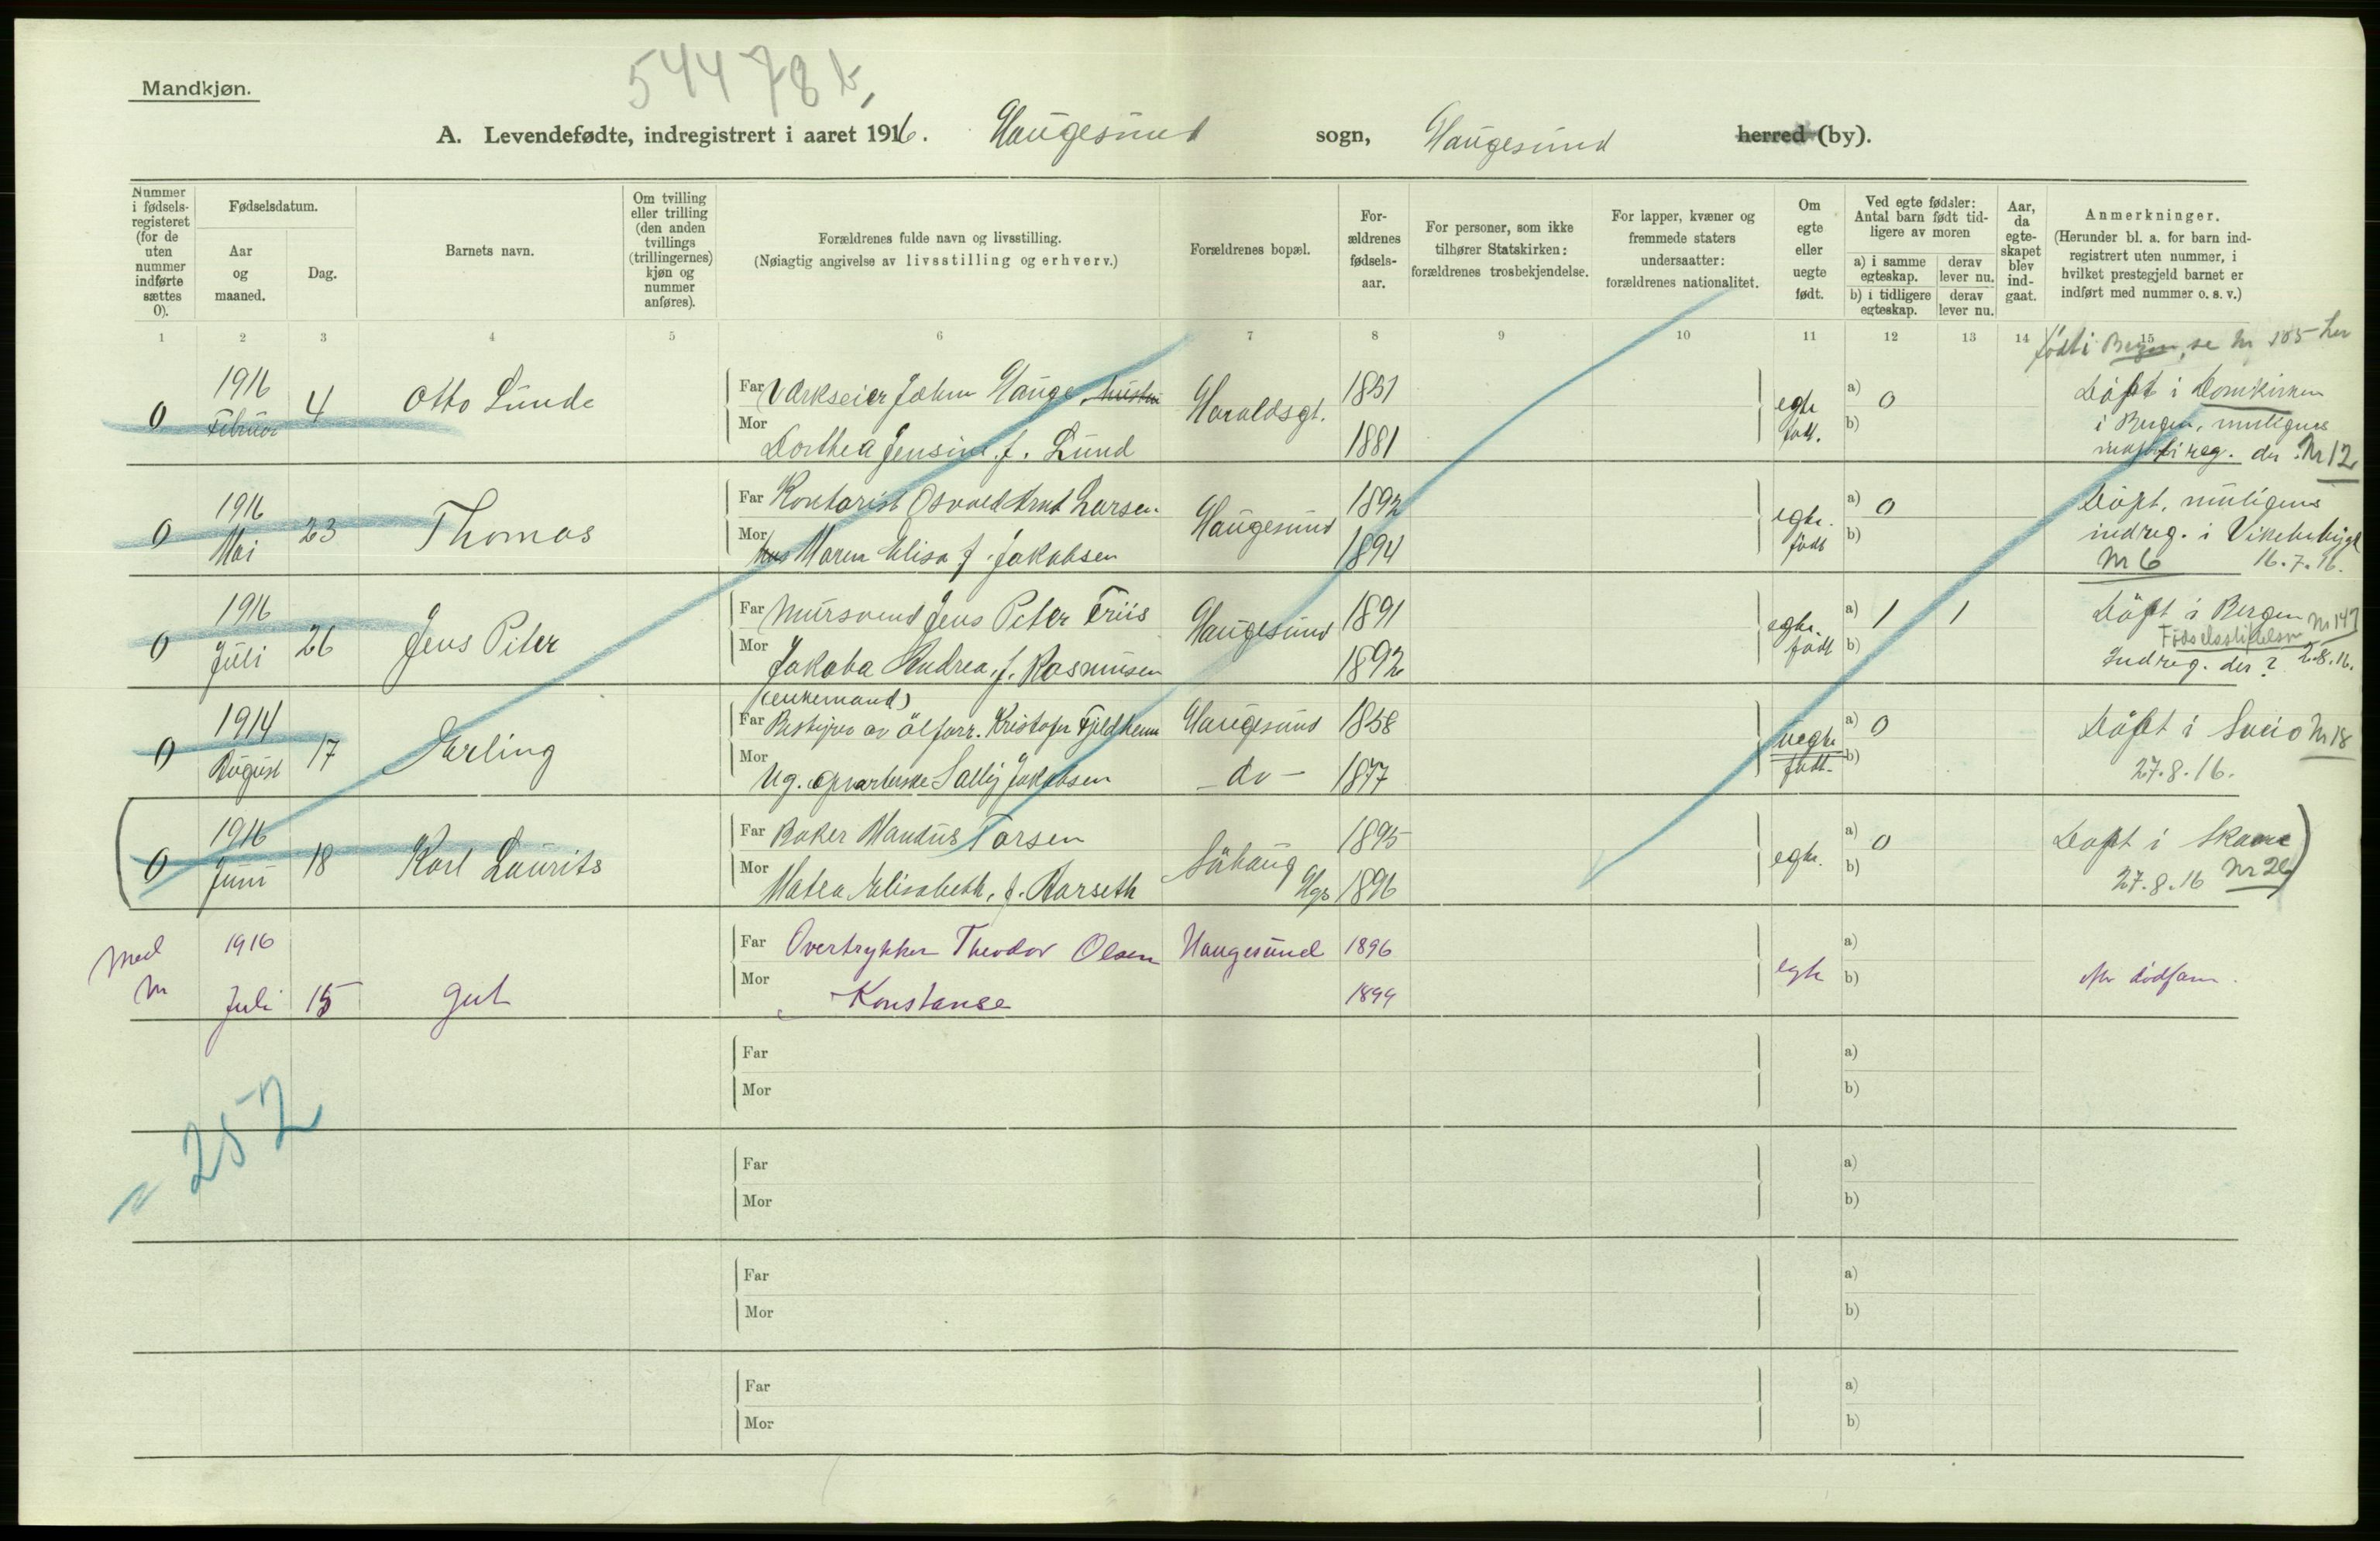 54478 b,
Mandkjøn.
A. Levendefødte, indregistrert i aaret 1916. Haugesund sogn, Haugesund herred (by).
Nummer i fødsels-registeret (for de uten nummer indførte sættes 0).
Fødselsdatum.
Aar og maaned.
Dag.
Barnets navn.
Om tvilling eller trilling (den anden tvillings (trillingernes) kjøn og nummer anføres).
Forældrenes fulde navn og livsstilling.
(Nøiagtig angivelse av livsstilling og erhverv.)
Forældrenes bopæl.
For-ældrenes fødsels-aar.
For personer, som ikke tilhører Statskirken: forældrenes trosbekjendelse.
For lapper, kvæner og fremmede staters undersaatter: forældrenes nationalitet.
Om egte eller uegte født.
Ved egte fødsler: Antal barn født tid-ligere av moren
a) i samme egteskap.
derav lever nu.
b) i tidligere egteskap.
derav lever nu.
Aar, da egte-skapet blev ind-gaat.
Anmerkninger.
(Herunder bl. a. for barn ind-registrert uten nummer, i hvilket prestegjeld barnet er indført med nummer o. s. v.)
1 2 3 4 5 6 7 8 9 10 11 12 13 14 15
født i Bergen, se Nr 105 her
0 1916 Februar 4 Otto Lunde
Far Værkseier John Hauge
Mor Dorthea Jensine f. Lund
Haraldsgt. 1881
egte født.
a) 0
b)
Døpt i Domkirken
i Bergen, muligens
indført i reg. der. Nr 12
0 1916 Mai 23 Thomas
Far Kontorist Osvald Arnt Larsen
Mor Maren Elisa f. Jakobsen
Haugesund 1892 1894
egte født
a) 0
b)
Døpt, muligens
indreg. i Vikebygd
Nr 6 16.7.16.
0 1916 Juli 26 Jens Peter
Far Mursvend Jens Peter Friis
Mor Jakoba Andrea, f. Rasmusen
Haugesund 1891 1892
egte født
a) 1 1
b)
Døpt i Bergen Nr 147
Fødselsstiftelsen
Indreg. der? 2.8.16.
(enkemand)
0 1914 August 17 Erling
Far Bestyrer av ölforr. Kristofer Fjeldheim
Mor Ug. opvarterske Sally Jakobsen
Haugesund 1858
- do - 1877
uegte født.
a) 0
b)
Døpt i Sveio Nr 18
27.8.16.
0 1916 Juni 18 Karl Laurits
Far Baker Mandus Torsen
Mor Matea Elisabeth, f. Aarseth
Sörhaug Hgs 1895 1896
egte.
a) 0
b)
Døpt i Skaare
27.8.16 Nr 26
Med Nr
1916 Juli 15 gut
Far Overtrykker Theodor Olsen
Mor Konstanse
Haugesund 1896 1899
egte
a)
b)
Mor dödfam.
= 252
Far
Mor
a)
b)
Far
Mor
a)
b)
Far
Mor
a)
b)
Far
Mor
a)
b)